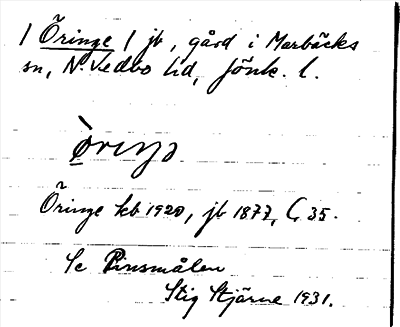 / Öringe / jb, gård i Marbäcks
sn, N. Vedbo hd, Jönk. l.
Öringe kb 1920, jb 1877, C, 35.
Se Pinsmålen
Stig Stjärne 1931.